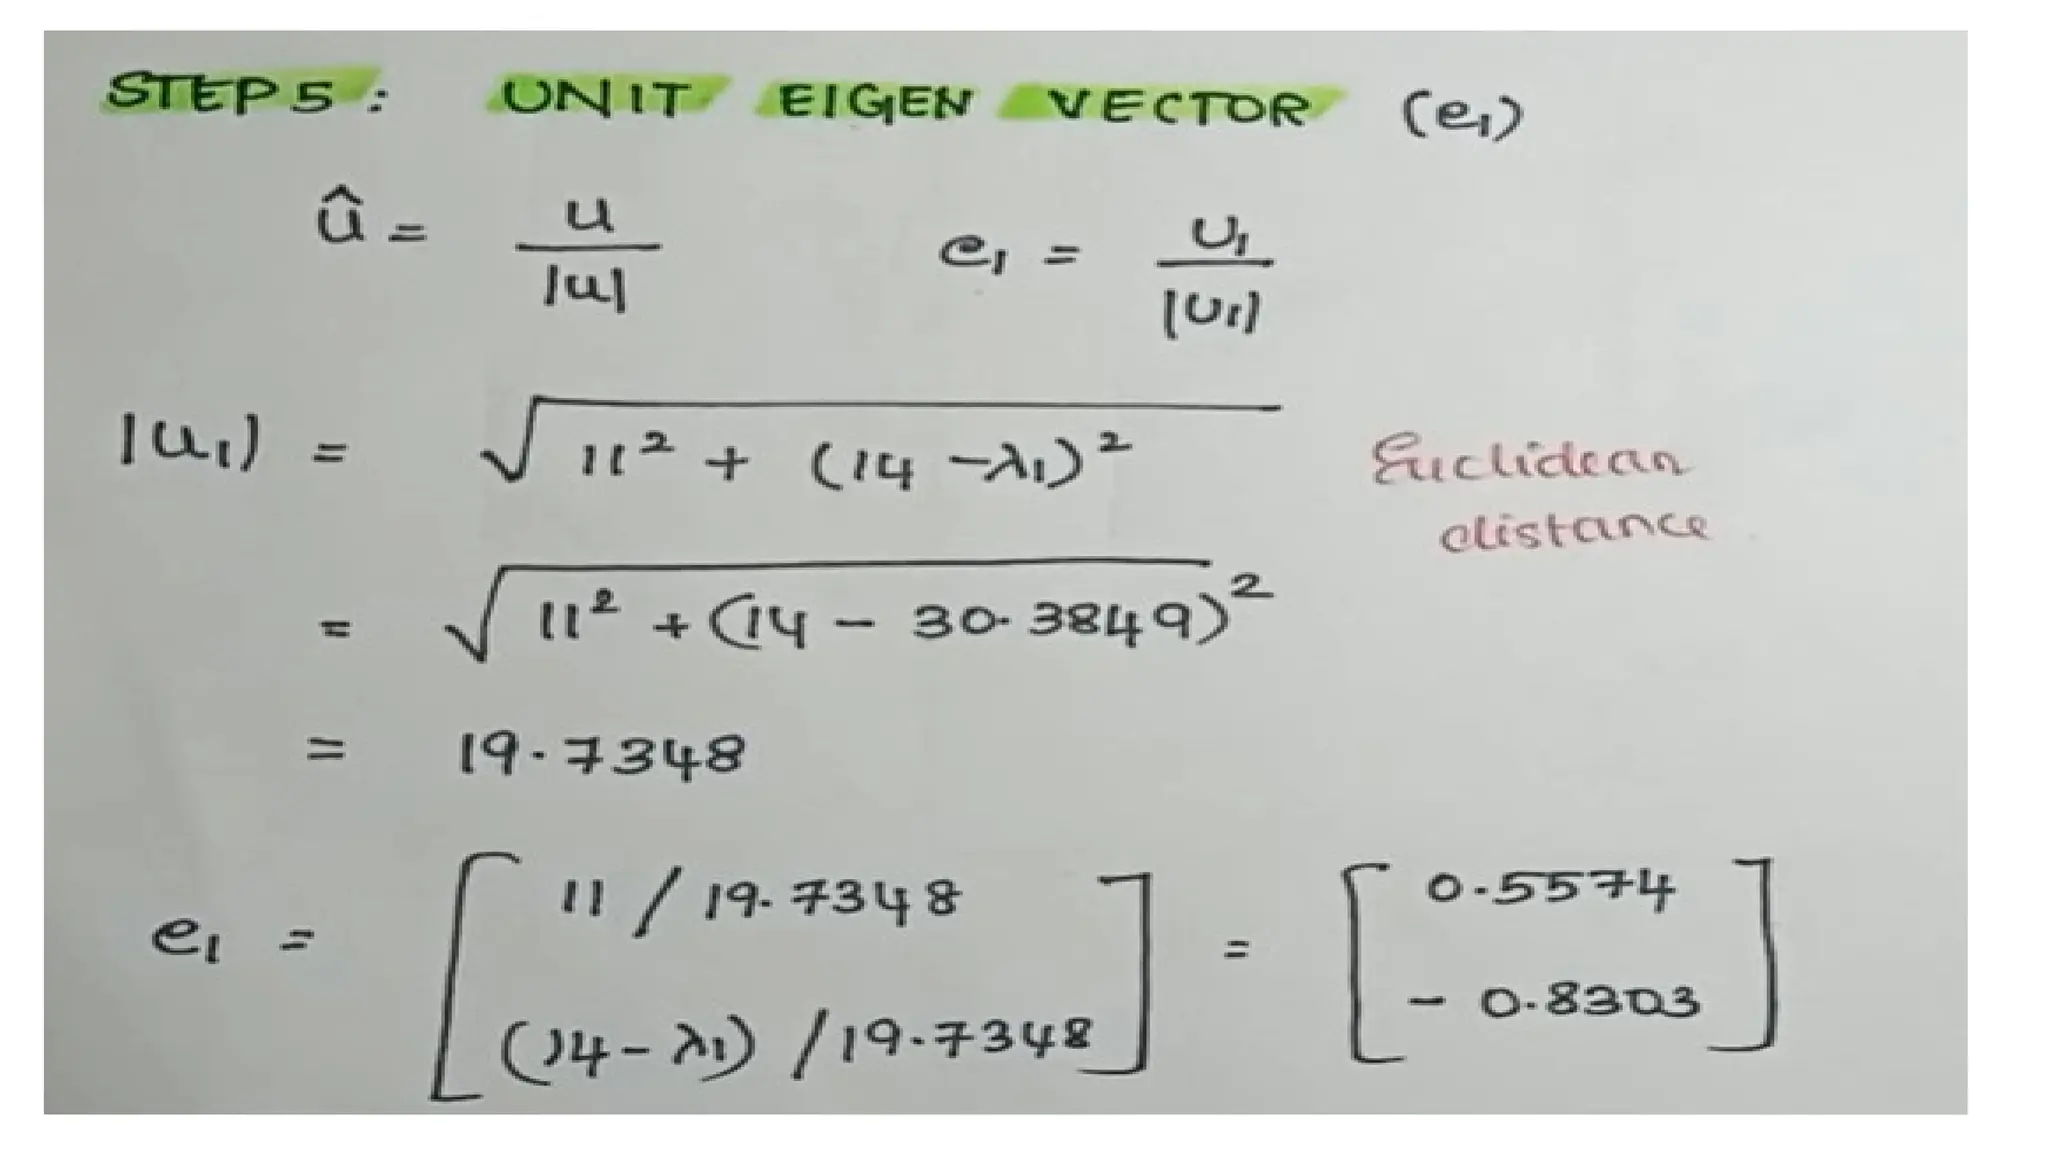 STEP 5 : UNIT EIGEN VECTOR (e₁)
û = u / |u|    e₁ = U₁ / |U₁|
|u₁| = √(11² + (14 - λ₁)²)    Euclidean
distance
= √(11² + (14 - 30.3849)²)
= 19.7348
e₁ = [ 11 / 19.7348 ] = [ 0.5574 ]
[ (14 - λ₁) / 19.7348 ] [ - 0.8303 ]